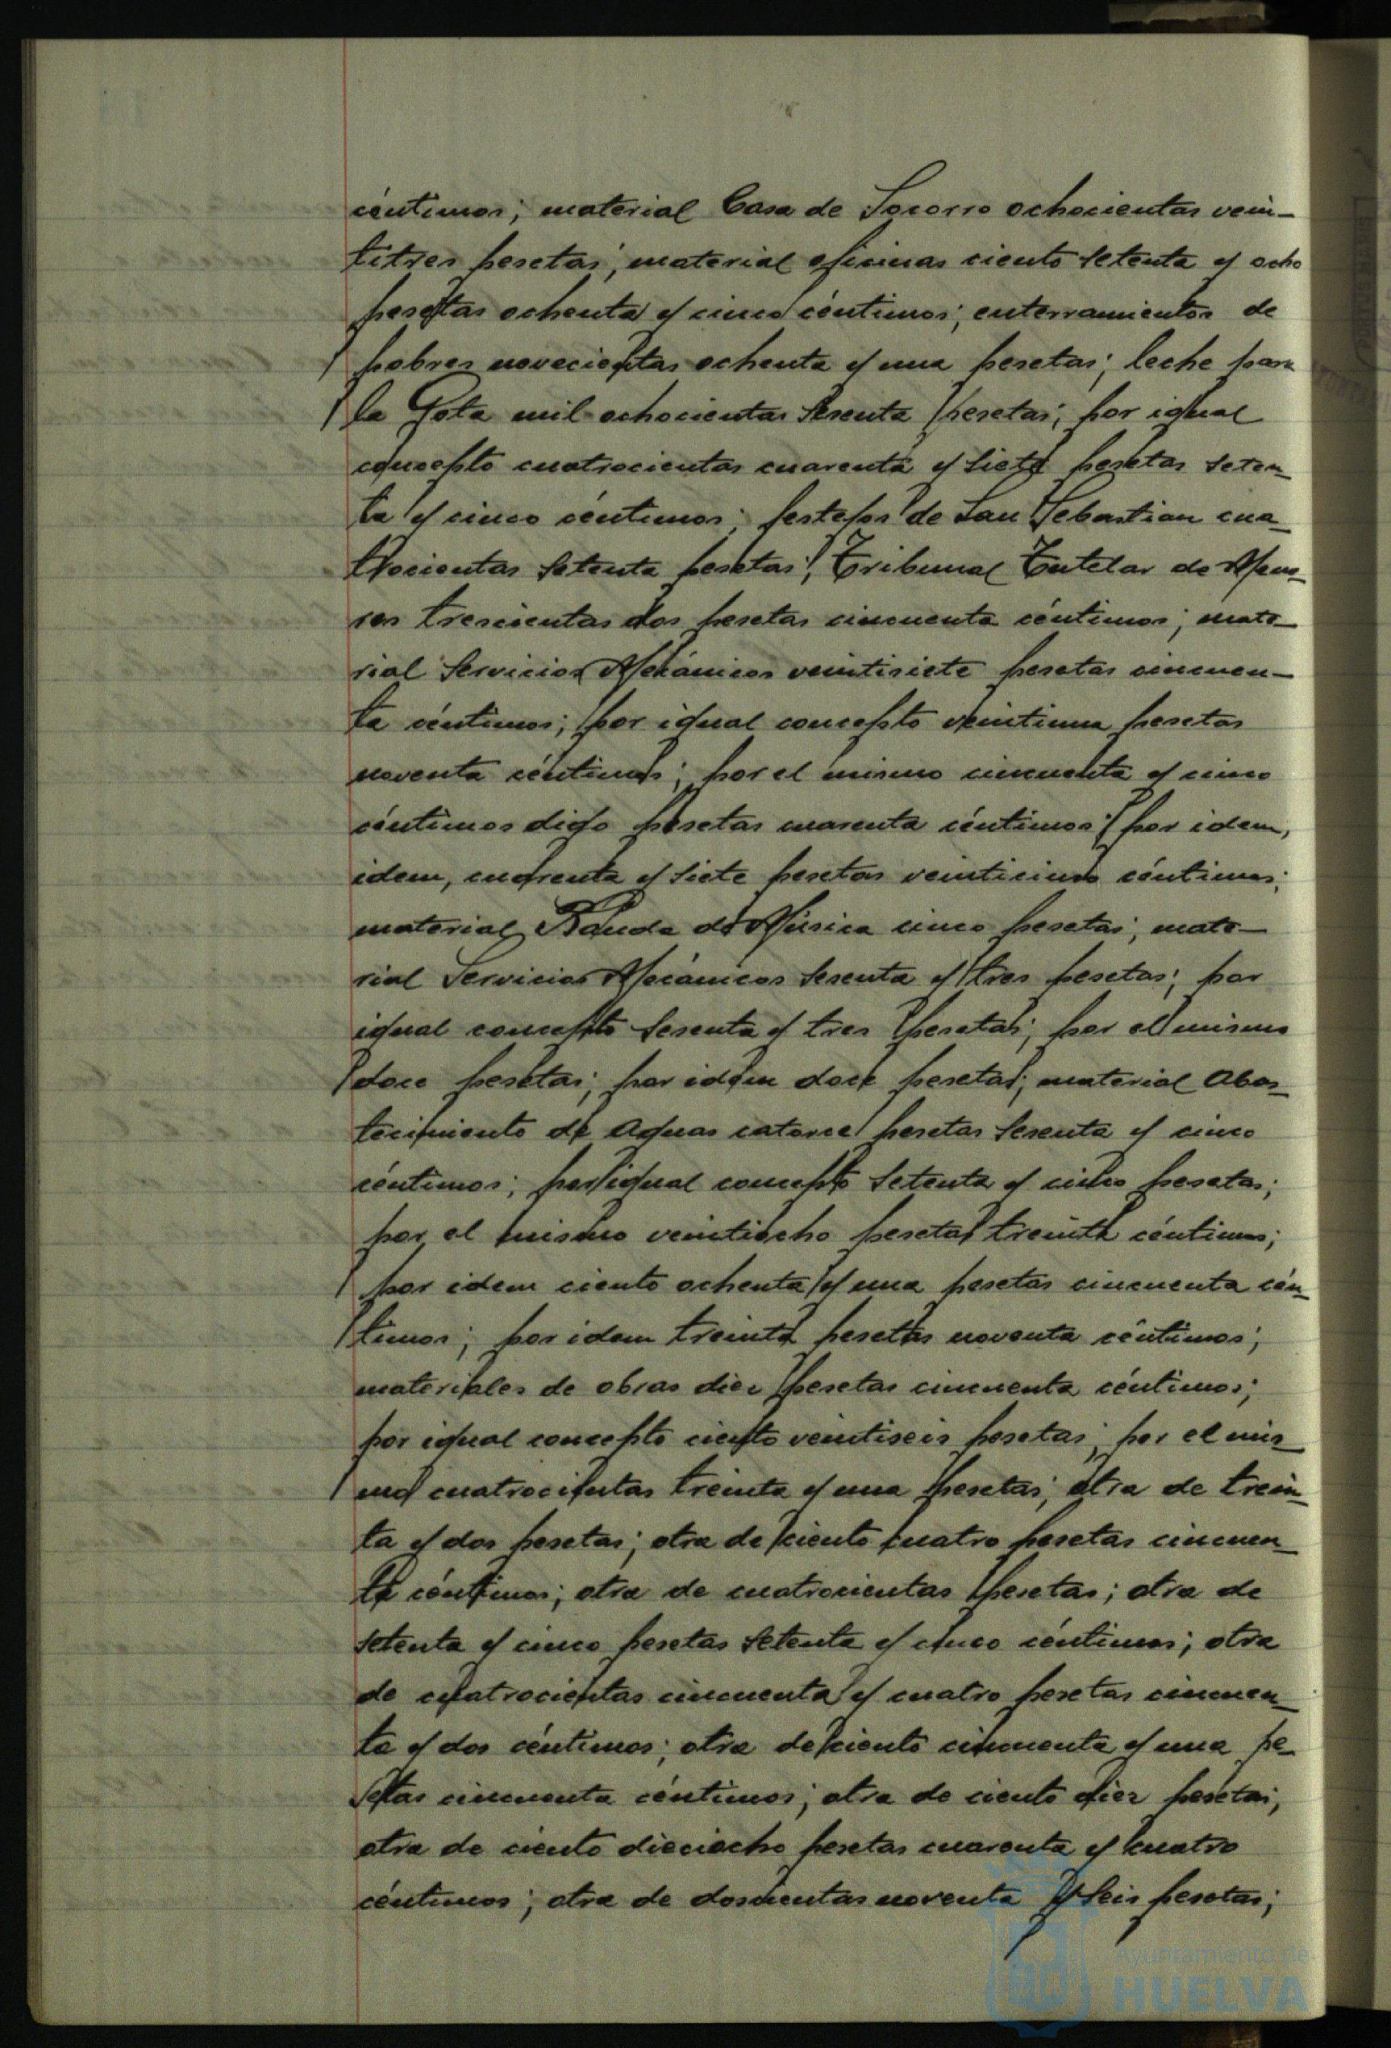 céntimos; material Casa de Socorro ochocientas vein-
titres pesetas; material oficinas ciento setenta y ocho
pesetas ochenta y cinco céntimos; enterramientos de
pobres novecientas ochenta y una pesetas; leche para
la Gota mil ochocientas sesenta pesetas; por igual
concepto cuatrocientas cuarenta y siete pesetas seten-
ta y cinco céntimos; festejos de San Sebastian cua-
trocientas setenta pesetas; Tribunal Tutelar de Meno-
res trescientas dos pesetas cincuenta céntimos; mate-
rial Servicios Mecánicos veintisiete pesetas cincuen-
ta céntimos; por igual concepto veintiuna pesetas
noventa céntimos; por el mismo cincuenta y cinco
céntimos digo pesetas cuarenta céntimos; por idem,
idem, cuarenta y siete pesetas veinticinco céntimos;
material Banda de Música cinco pesetas; mate-
rial Servicios Mecánicos sesenta y tres pesetas; por
igual concepto sesenta y tres pesetas; por el mismo
doce pesetas; por idem doce pesetas; material Abas-
tecimiento de Aguas catorce pesetas sesenta y cinco
céntimos; por igual concepto setenta y cinco pesetas;
por el mismo veintiocho pesetas treinta céntimos;
por idem ciento ochenta y una pesetas cincuenta cén-
timos; por idem treinta pesetas noventa céntimos;
materiales de obras diez pesetas cincuenta céntimos;
por igual concepto ciento veintiseis pesetas; por el mis-
mo cuatrocientas treinta y una pesetas; otra de trein-
ta y dos pesetas; otra de ciento cuatro pesetas cincuen-
ta céntimos; otra de cuatrocientas pesetas; otra de
setenta y cinco pesetas setenta y cinco céntimos; otra
de cuatrocientas cincuenta y cuatro pesetas cincuen-
ta y dos céntimos; otra de ciento cincuenta y una pe-
setas cincuenta céntimos; otra de ciento diez pesetas;
otra de ciento dieciocho pesetas cuarenta y cuatro
céntimos; otra de doscientas noventa y seis pesetas;
Ayuntamiento de
HUELVA